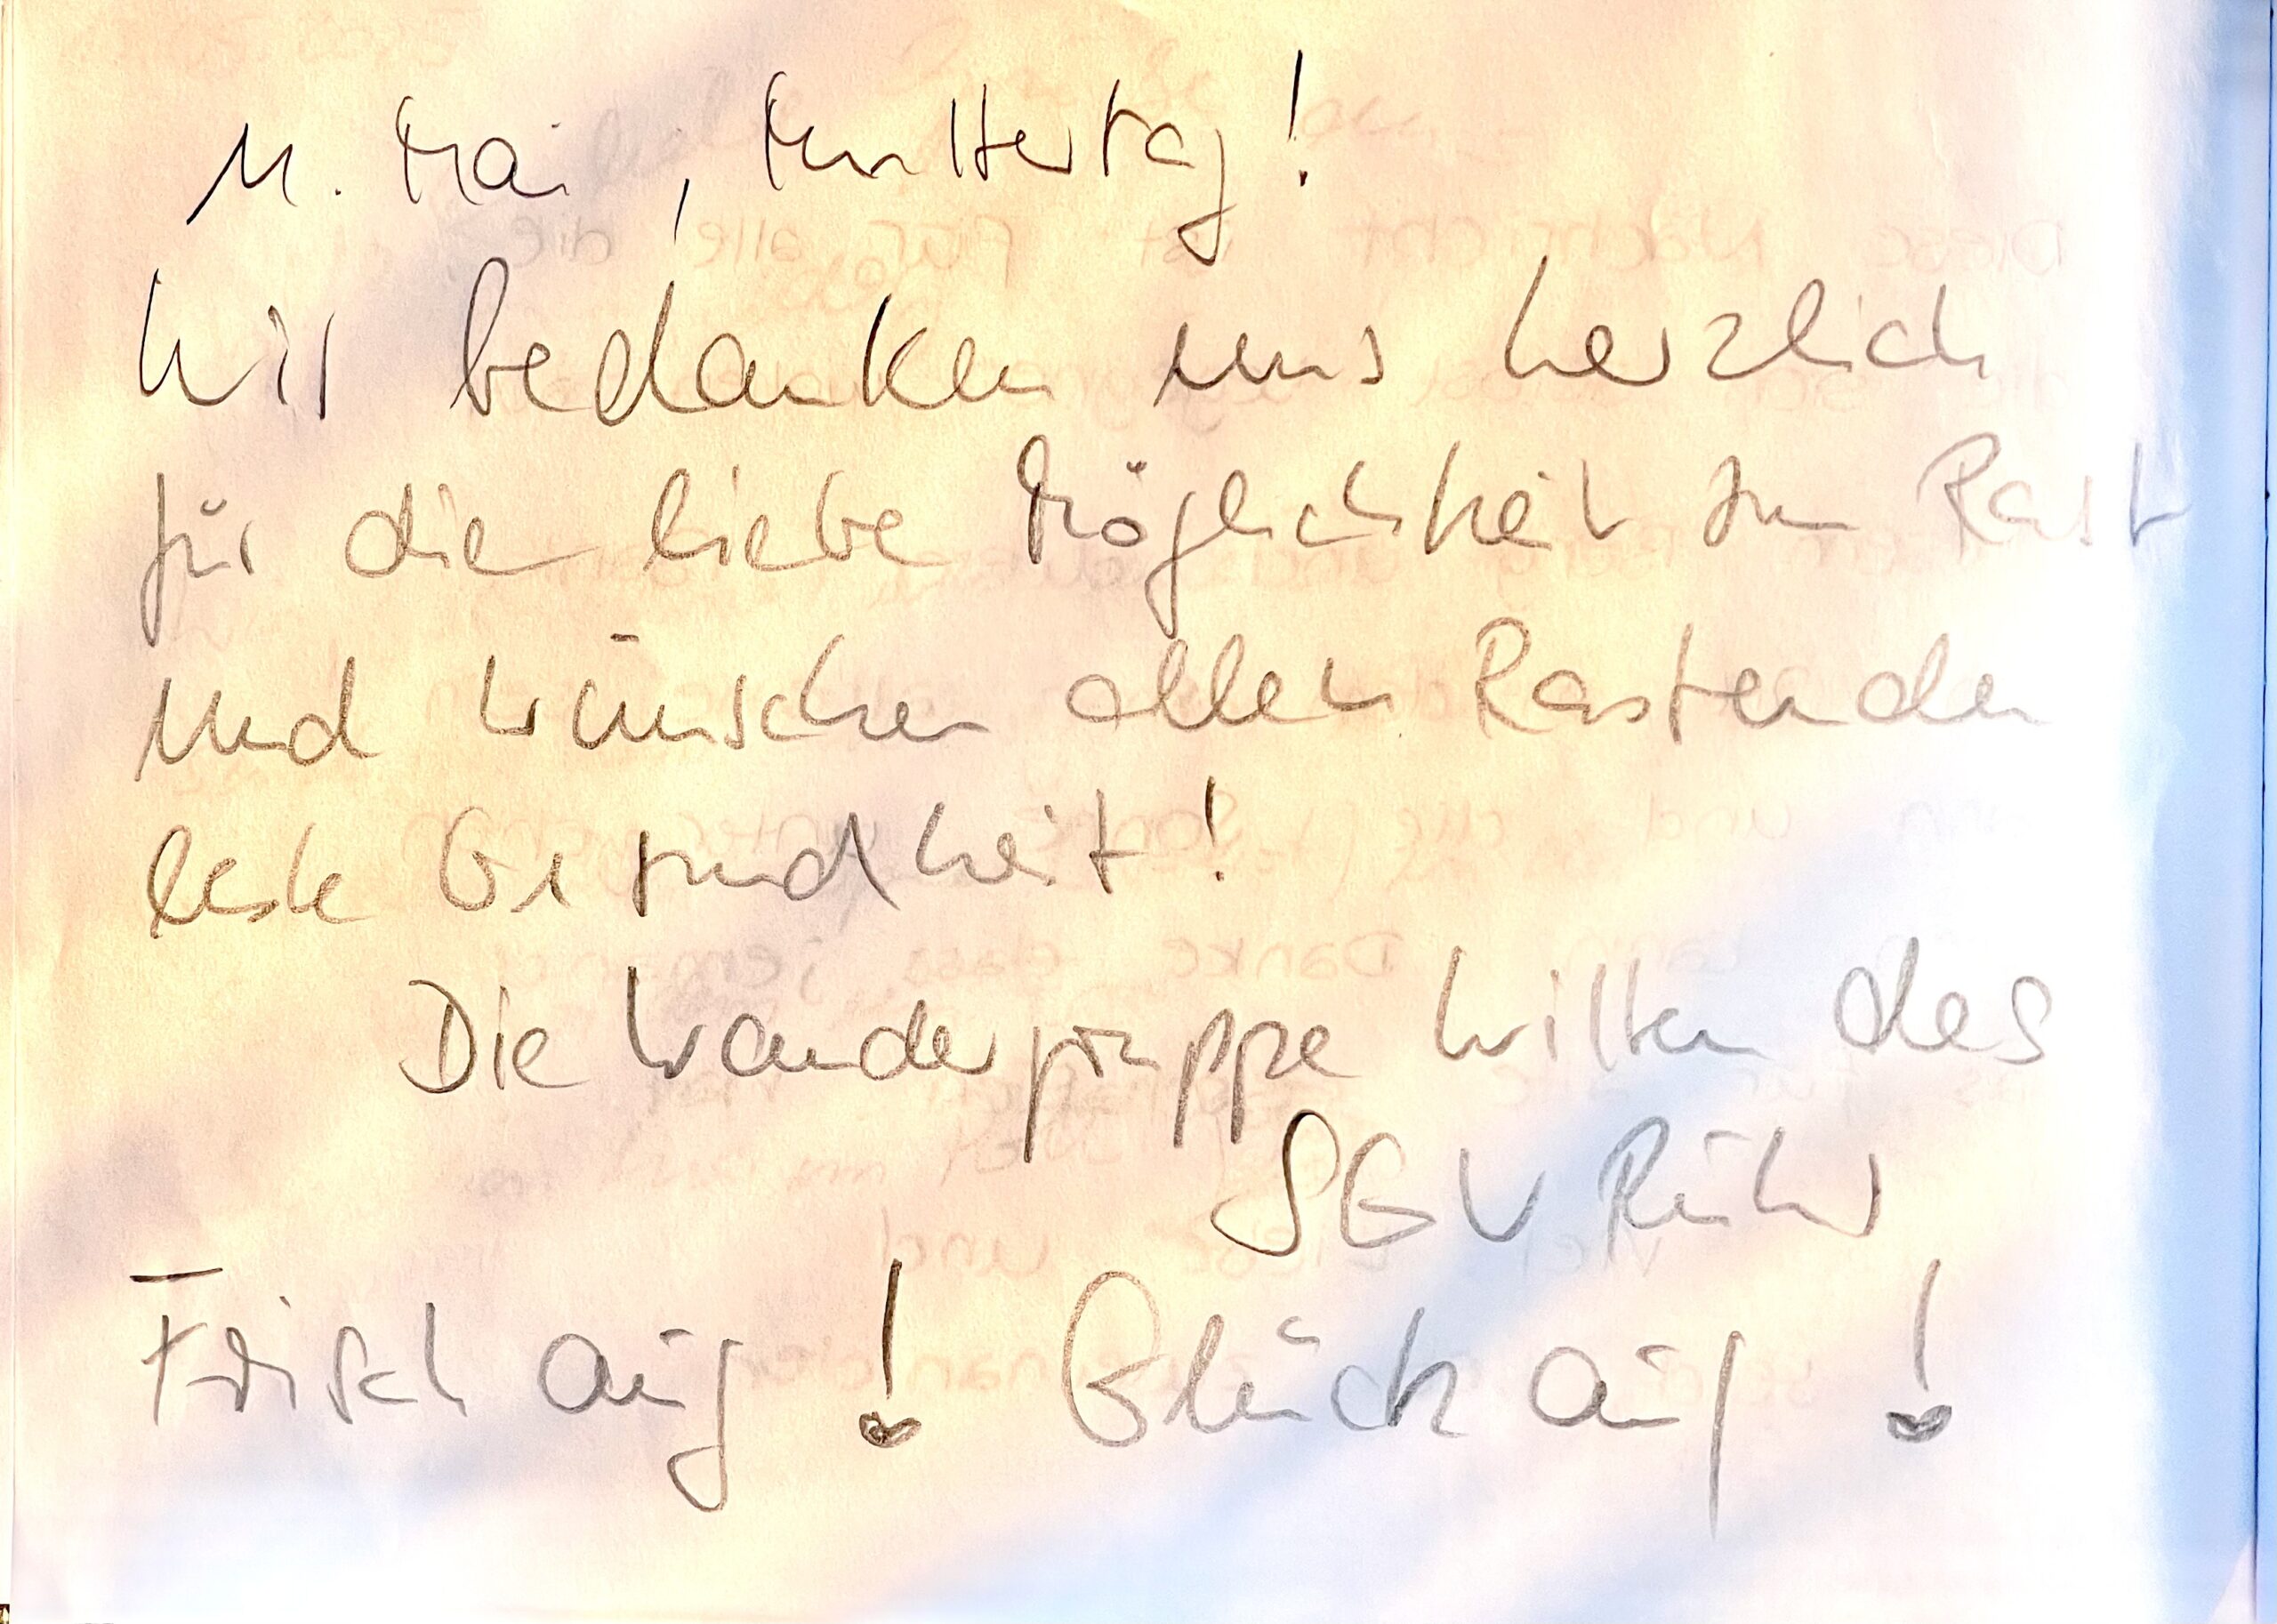 11. Mai, Muttertag!
Wir bedanken uns herzlich
für die liebe Möglichkeit zur Rast
und wünschen allen Rastenden
beste Gesundheit!
Die Wandergruppe Witten des
SGV Ruhr
Frisch auf! Glück auf!